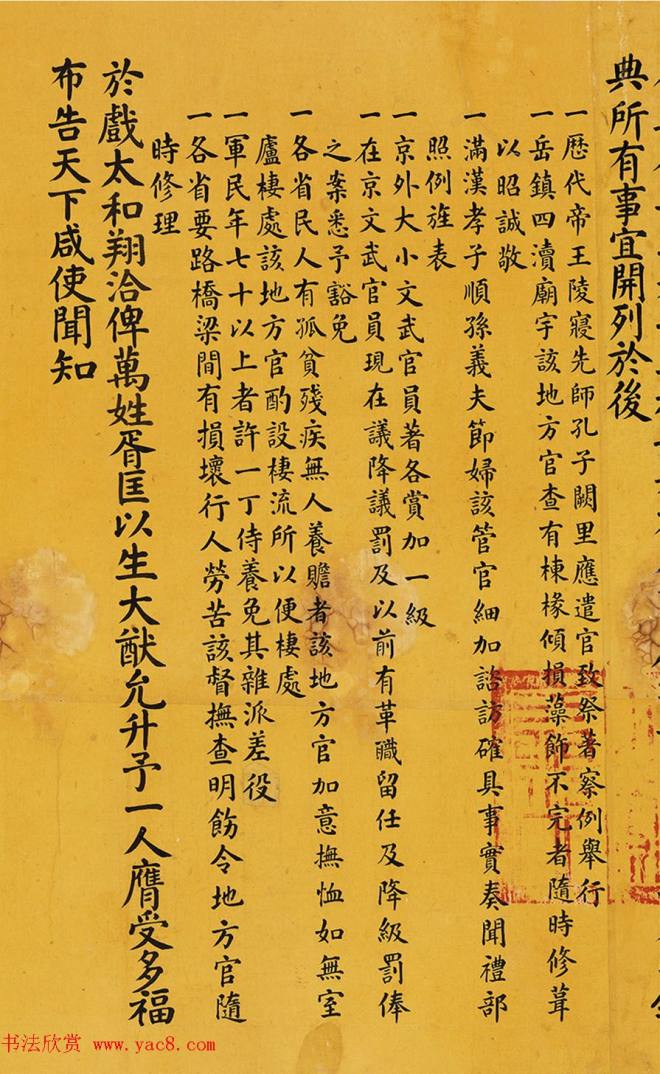 典所有事宜開列於後
一歷代帝王陵寢先師孔子闕里應遣官致祭著察例舉行
一岳鎮四瀆廟宇該地方官查有棟椽傾損藻飾不完者隨時修葺
以昭誠敬
一滿漢孝子順孫義夫節婦該管官細加諮訪確具事實奏聞禮部
照例旌表
一京外大小文武官員著各賞加一級
一在京文武官員現在議降議罰及以前有革職留任及降級罰俸
之案悉予豁免
一各省民人有孤貧殘疾無人養贍者該地方官加意撫恤如無室
廬棲處該地方官酌設棲流所以便棲處
一軍民年七十以上者許一丁侍養免其雜派差役
一各省要路橋梁間有損壞行人勞苦該督撫查明飭令地方官隨
時修理
於戲太和翔洽俾萬姓胥匡以生大猷允升予一人膺受多福
布告天下咸使聞知
书法欣赏 www.yac8.com